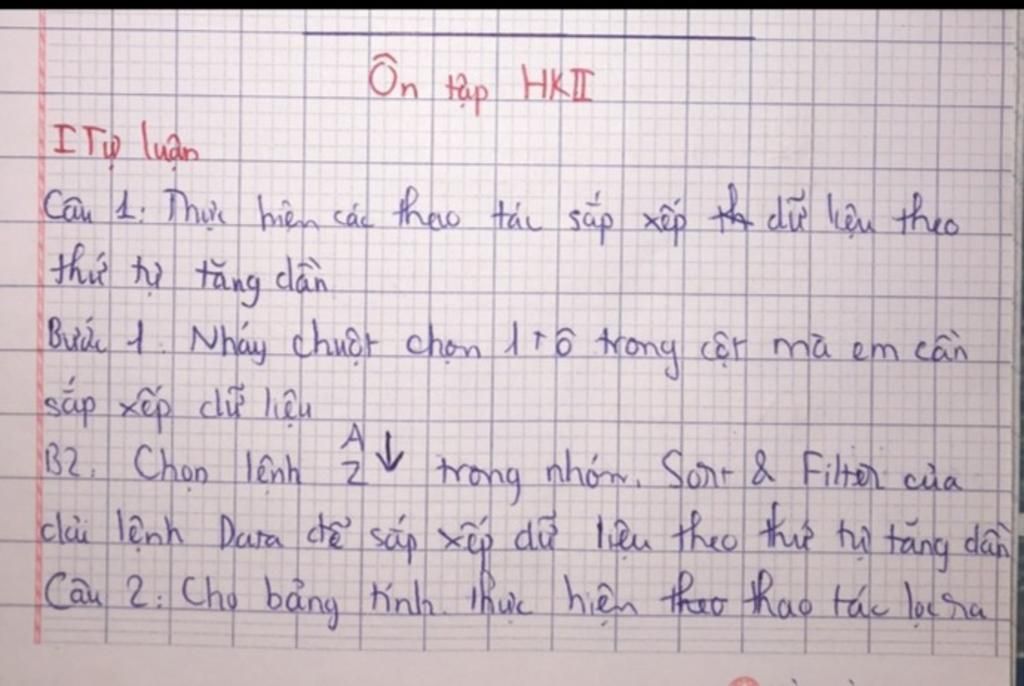 Ôn tập HKII
I Tự luận
Câu 1: Thực hiện các thao tác sắp xếp th dữ liệu theo
thứ tự tăng dần
Bước 1. Nháy chuột chọn 1 ô trong cột mà em cần
sắp xếp dữ liệu
B2. Chọn lệnh A Z ↓ trong nhóm. Sort & Filter của
dải lệnh Data để sắp xếp dữ liệu theo thứ tự tăng dần
Câu 2: Cho bảng tính. Thực hiện theo thao tác lọc ra